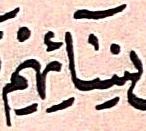 نِسَآئِهِمْ